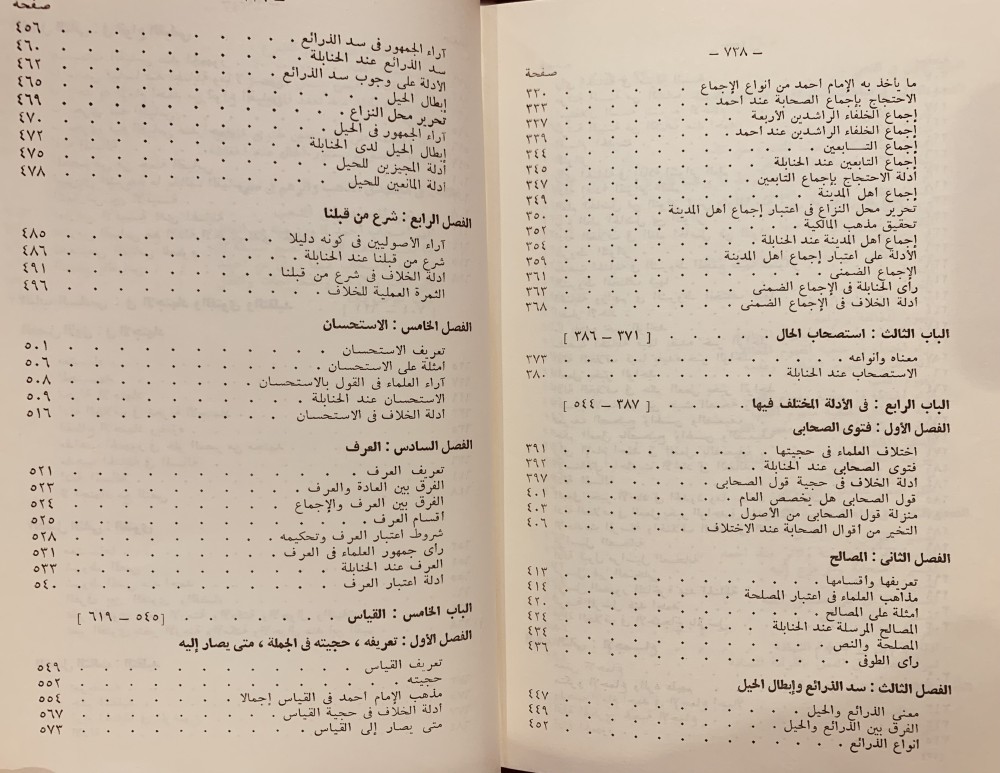 – ٧٣٨ –
صفحة
ما يأخذ به الإمام أحمد من أنواع الإجماع . . . . . . ٣٣٠
الاحتجاج بإجماع الصحابة عند أحمد . . . . . . ٣٣٣
إجماع الخلفاء الراشدين الأربعة . . . . . . ٣٣٧
إجماع الخلفاء الراشدين عند أحمد . . . . . . ٣٣٩
إجماع التـــابعين . . . . . . ٣٤٤
إجماع التابعين عند الحنابلة . . . . . . ٣٤٥
أدلة الاحتجاج بإجماع التابعين . . . . . . ٣٤٧
إجماع أهل المدينة . . . . . . ٣٤٩
تحرير محل النزاع فى اعتبار إجماع أهل المدينة . . . . . . ٣٥٠
تحقيق مذهب المالكية . . . . . . ٣٥٢
إجماع أهل المدينة عند الحنابلة . . . . . . ٣٥٤
الأدلة على اعتبار إجماع أهل المدينة . . . . . . ٣٥٩
الإجماع الضمنى . . . . . . ٣٦١
رأى الحنابلة فى الإجماع الضمنى . . . . . . ٣٦٣
أدلة الخلاف فى الإجماع الضمنى . . . . . . ٣٦٨
الباب الثالث : استصحاب الحال . . . . [ ٣٧١ – ٣٨٦ ]
معناه وأنواعه . . . . . . ٣٧٣
الاستصحاب عند الحنابلة . . . . . . ٣٨٠
الباب الرابع : فى الأدلة المختلف فيها . . . . [ ٣٨٧ – ٥٤٤ ]
الفصل الأول : فتوى الصحابى
اختلاف العلماء فى حجيتها . . . . . . ٣٩١
فتوى الصحابى عند الحنابلة . . . . . . ٣٩٢
أدلة الخلاف فى حجية قول الصحابى . . . . . . ٣٩٧
قول الصحابى هل يخصص العام . . . . . . ٤٠١
منزلة قول الصحابى من الأصول . . . . . . ٤٠٣
التخير من أقوال الصحابة عند الاختلاف . . . . . . ٤٠٦
الفصل الثانى : المصالح
تعريفها وأقسامها . . . . . . ٤١٣
مذاهب العلماء فى اعتبار المصلحة . . . . . . ٤١٤
أمثلة على المصالح . . . . . . ٤٢٠
المصالح المرسلة عند الحنابلة . . . . . . ٤٢٤
المصلحة والنص . . . . . . ٤٣٤
رأى الطوفى . . . . . . ٤٣٦
الفصل الثالث : سد الذرائع وإبطال الحيل
معنى الذرائع والحيل . . . . . . ٤٤٧
الفرق بين الذرائع والحيل . . . . . . ٤٤٩
أنواع الذرائع . . . . . . ٤٥٢
صفحة
آراء الجمهور فى سد الذرائع . . . . . . ٤٥٦
سد الذرائع عند الحنابلة . . . . . . ٤٦٠
الأدلة على وجوب سد الذرائع . . . . . . ٤٦٢
إبطال الحيل . . . . . . ٤٦٥
تحرير محل النزاع . . . . . . ٤٦٩
آراء الجمهور فى الحيل . . . . . . ٤٧٠
إبطال الحيل لدى الحنابلة . . . . . . ٤٧٢
أدلة المجيزين للحيل . . . . . . ٤٧٥
أدلة المانعين للحيل . . . . . . ٤٧٨
الفصل الرابع : شرع من قبلنا
آراء الأصوليين فى كونه دليلا . . . . . . ٤٨٥
شرع من قبلنا عند الحنابلة . . . . . . ٤٨٦
أدلة الخلاف فى شرع من قبلنا . . . . . . ٤٩١
الثمرة العملية للخلاف . . . . . . ٤٩٦
الفصل الخامس : الاستحسان
تعريف الاستحسان . . . . . . ٥٠١
أمثلة على الاستحسان . . . . . . ٥٠٦
آراء العلماء فى القول بالاستحسان . . . . . . ٥٠٨
الاستحسان عند الحنابلة . . . . . . ٥٠٩
أدلة الخلاف فى الاستحسان . . . . . . ٥١٦
الفصل السادس : العرف
تعريف العرف . . . . . . ٥٢١
الفرق بين العادة والعرف . . . . . . ٥٢٣
الفرق بين العرف والإجماع . . . . . . ٥٢٤
أقسام العرف . . . . . . ٥٢٥
شروط اعتبار العرف وتحكيمه . . . . . . ٥٢٨
رأى جمهور العلماء فى العرف . . . . . . ٥٣١
العرف عند الحنابلة . . . . . . ٥٣٣
أدلة اعتبار العرف . . . . . . ٥٤٠
الباب الخامس : القياس . . . . . . [ ٥٤٥ – ٦١٩ ]
الفصل الأول : تعريفه ، حجيته فى الجملة ، متى يصار إليه
تعريف القياس . . . . . . ٥٤٩
حجيته . . . . . . ٥٥٢
مذهب الإمام أحمد فى القياس إجمالا . . . . . . ٥٥٤
أدلة الخلاف فى حجية القياس . . . . . . ٥٦٧
متى يصار إلى القياس . . . . . . ٥٧٣